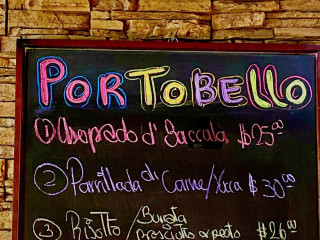 PORTOBELLO
① Asopado d' Baccala $25.00
② Parrillada di Carne/Xara $30.00
③ Risotto / Burrata
prosciutto $26.00